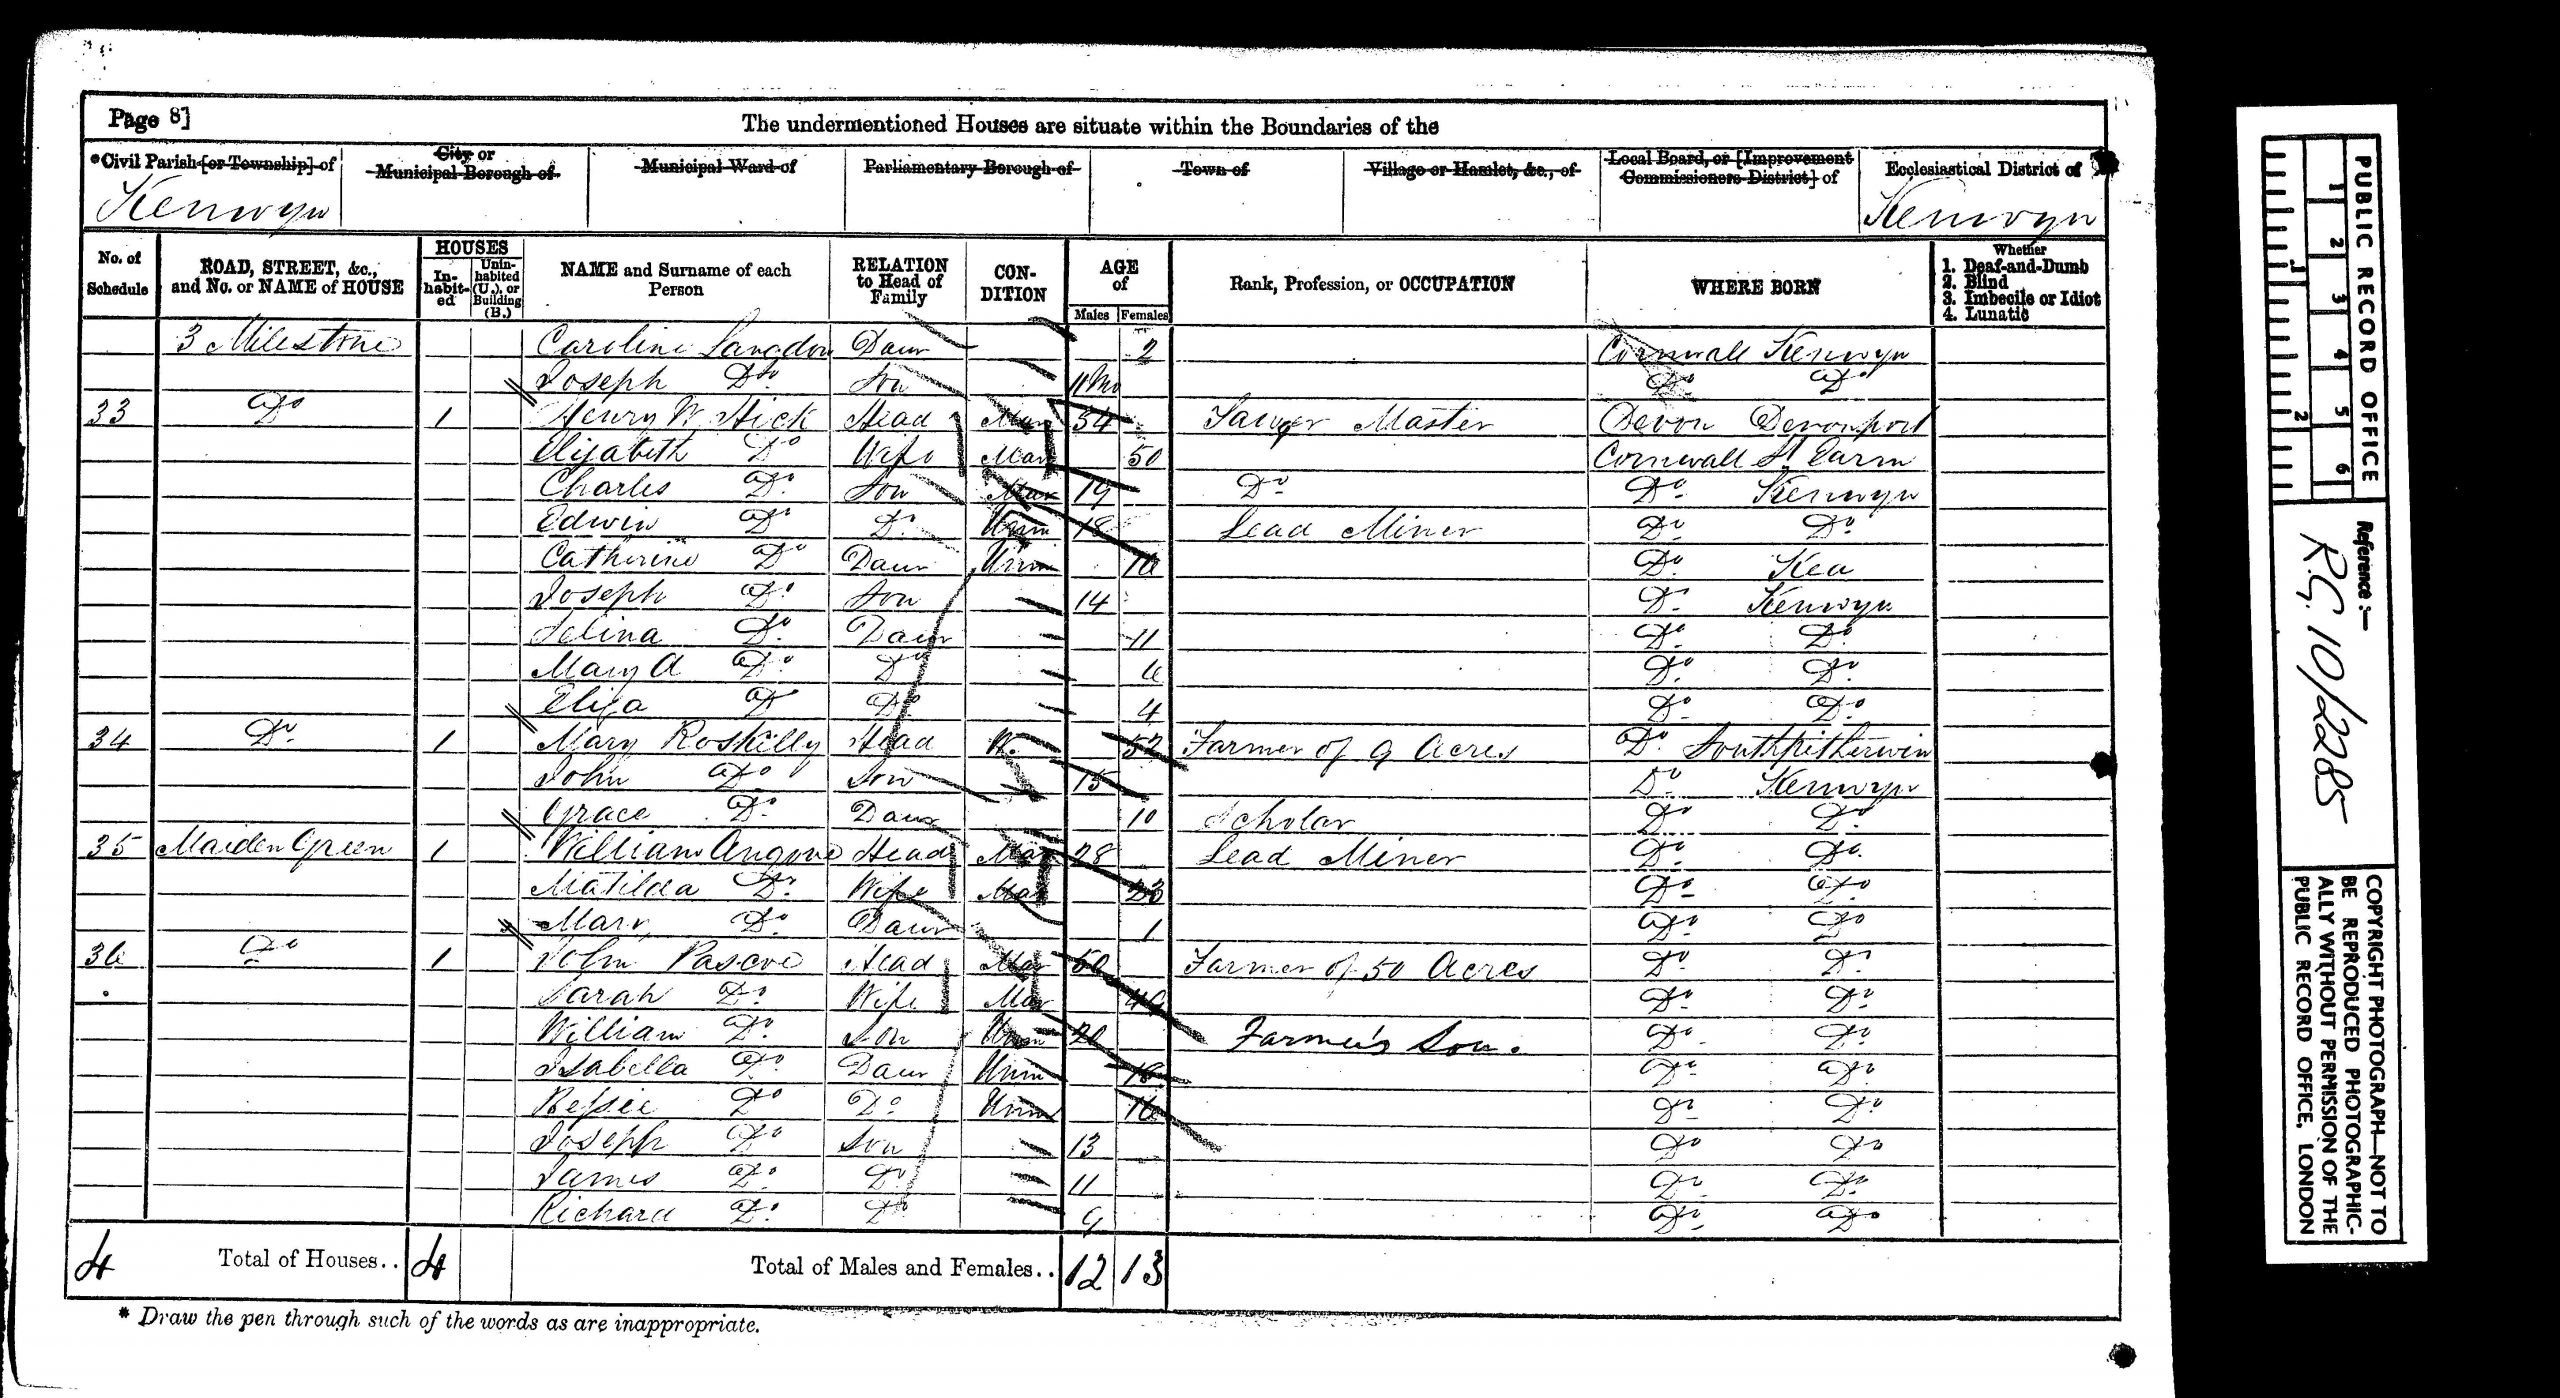 Page 8]
The undermentioned Houses are situate within the Boundaries of the
*Civil Parish [or Township] of
City or Municipal Borough of
Municipal Ward of
Parliamentary Borough of
Town of
Village or Hamlet, &c., of
Local Board, or [Improvement Commissioners District] of
Ecclesiastical District of
Kenwyn Kenwyn
No. of Schedule
ROAD, STREET, &c., and No. or NAME of HOUSE
HOUSES
In-habit-ed
Unin-habited (U.), or Building (B.)
NAME and Surname of each Person
RELATION to Head of Family
CON-DITION
AGE of
Males Females
Rank, Profession, or OCCUPATION
WHERE BORN
Whether
1. Deaf-and-Dumb
2. Blind
3. Imbecile or Idiot
4. Lunatic
3 Milestone Caroline Langdon Daur 2 Cornwall Kenwyn
Joseph Do Son 11 Mo Do Do
33 Do 1 Henry W Hick Head Mar 54 Sawyer Master Devon Devonport
Elizabeth Do Wife Mar 50 Cornwall St
Charles Do Son 19 Do Do Kenwyn
Edwin Do Do Unm 18 Lead Miner Do Do
Catherine Do Daur Unm 16 Do Kea
Joseph Do Son 14 Do Kenwyn
Selina Do Daur 11 Do Do
Mary A Do Do 6 Do Do
Eliza Do Do 4 Do Do
34 Do 1 Mary Roskilly Head W. 52 Farmer of 9 Acres Do Southpitherwin
John Do Son 15 Do Kenwyn
Grace Do Daur 10 Scholar Do Do
35 Maiden Green 1 William Angove Head Mar 28 Lead Miner Do Do
Matilda Do Wife Mar 23 Do Do
Mary Do Daur 1 Do Do
36 Do 1 John Pascoe Head Mar 50 Farmer of 50 Acres Do Do
Sarah Do Wife Mar 49 Do Do
William Do Son Unm 20 Farmer's Son. Do Do
Isabella Do Daur Unm 18 Do Do
Bessie Do Do Unm 16 Do Do
Joseph Do Son 13 Do Do
James Do Do 11 Do Do
Richard Do Do 9 Do Do
4 Total of Houses.. 4 Total of Males and Females.. 12 13
* Draw the pen through such of the words as are inappropriate.
PUBLIC RECORD OFFICE
1 2 3 4 5 6
1 2
Reference :—
R.G. 10/2285
COPYRIGHT PHOTOGRAPH—NOT TO
BE REPRODUCED PHOTOGRAPHIC-
ALLY WITHOUT PERMISSION OF THE
PUBLIC RECORD OFFICE, LONDON